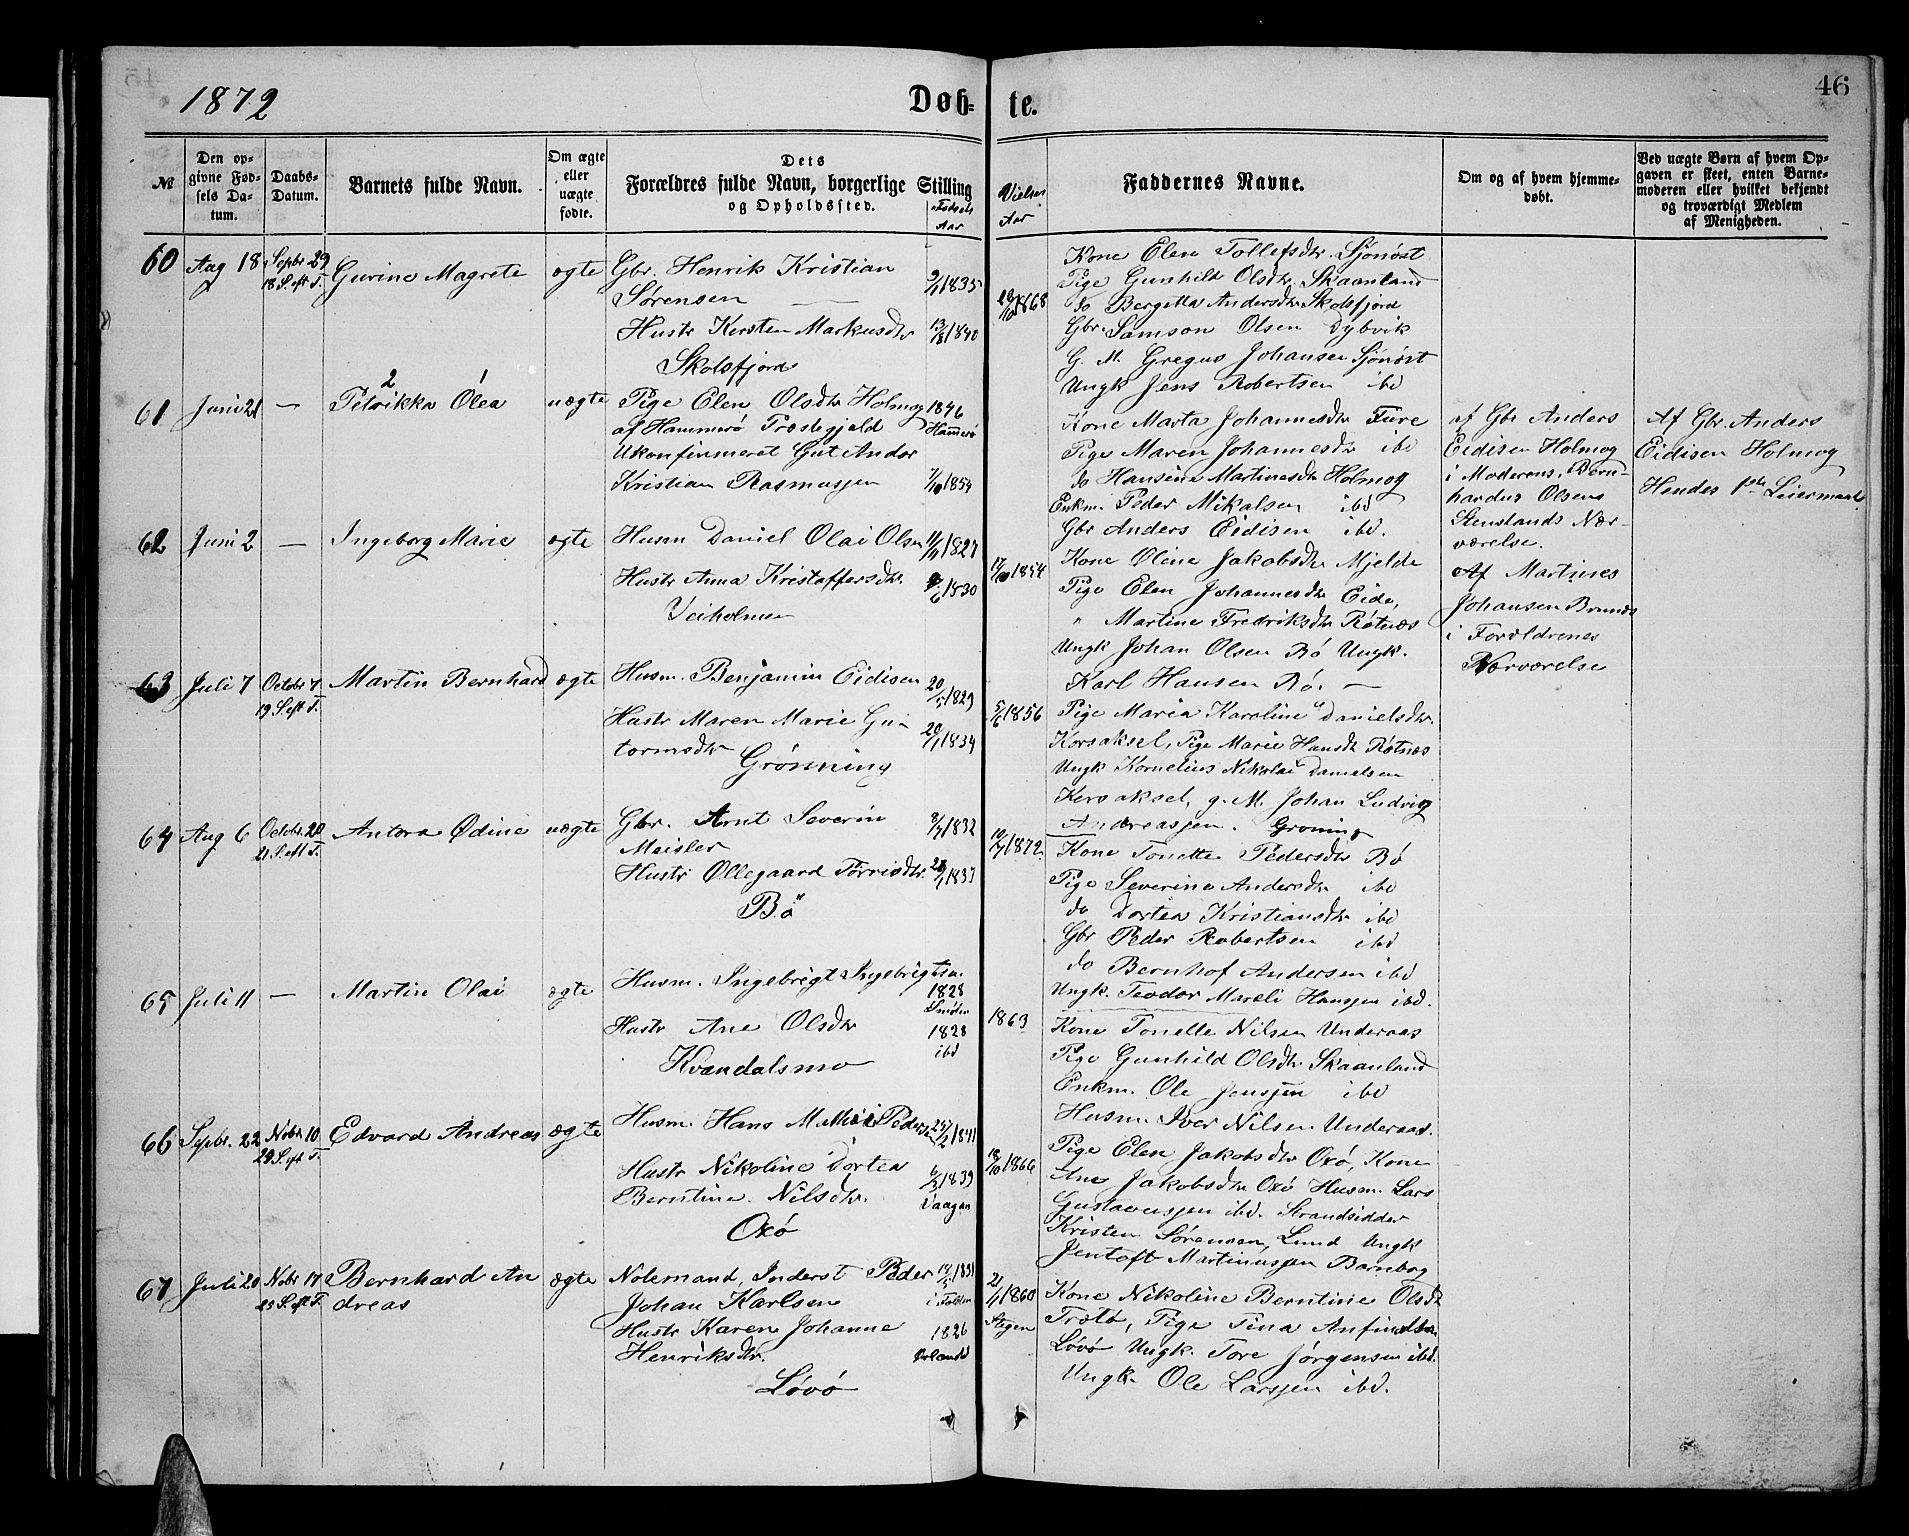 1872
Døb-
te.
46
№
Den op-
givne Fød-
sels Da-
tum.
Daabs-
Datum.
Barnets fulde Navn.
Om ægte
eller
uægte
fødte.
Dets
Forældres fulde Navn, borgerlige Stilling
og Opholdssted.
Fødsels
Aar
Vielses
Aar
Faddernes Navne.
Om og af hvem hjemme-
døbt.
Ved uægte Børn af hvem Op-
gaven er skeet, enten Barne-
moderen eller hvilket bekjendt
og troværdigt Medlem
af Menigheden.
60
Aug 18
Septbr 29
18 S. eft T.
Gurine Magrete
ægte
Gbr. Henrik Kristian
Sørensen
9/1 1835
Hustr Kersten Markusdtr
13/8 1840
Skolsfjord
1868
Kone Elen Tollefsdtr Sjonøst
Pige Gunhild Olsdtr Skaanland
do Bergetta Andersdtr Skolsfjord
Gbr. Samson Olsen Dybvik
G. M. Gregus Johansen Sjonøst
Ungk Jens Robertsen ibd
61
Juni 21
—
2
Petrikka Olea
uægte
Pige Elen Olsdtr Holmog
af Hammerø Præstegjeld
1846
Hamerø
Ukonfirmeret Gut Andor
Kristian Rasmussen
7/10 1854
Kone Marta Johannesdtr Fure
Pige Maren Johannesdtr ibd
do Hansine Martinesdtr Holmog
Enkm. Peder Mikalsen ibd
Gbr Anders Eidisen ibd.
af Gbr Anders
Eidisen Holmog
i Moderens, Bern-
hardus Olsens
Stenslands Nær-
værelse.
Af Gbr. Anders
Eidisen Holmog
Hendes 1ste Leiermaal
62
Juni 2
—
Ingeborg Marie
ægte
Husm Daniel Olai Olsen
11/11 1827
Hustr Anna Kristoffersdtr.
6 1830
Veiholmen
17/10 1854
Kone Oline Jakobsdtr Mjelde
Pige Elen Johannesdtr Eide,
" Martine Fredriksdtr Røtnæs
Ungk Johan Olsen Bø Ungk.
Karl Hansen Bø. —
Af Martines
Johansen Brunæs
i Forældrenes
Nærværelse
63
Juli 7
Octobr 7
19 S. eft T.
Martin Bernhard
ægte
Husm. Benjamin Eidisen
20/5 1829
Hustr Maren Marie Gu-
tormsdtr
20/1 1834
Grønning
5/6 1856
Pige Maria Karoline Danielsdtr.
Korsaksel, Pige Marie Hansdtr Røtnæs
Ungk Kornelius Nikolai Danielsen
Korsaksel, g. M. Johan Ludvig
Andreassen. Grøning
64
Aug 6
Octobr. 20
21 S. eft T.
Antora Ødine
uægte
Gbr. Arnt Severin
Meisler
8/7 1832
Hustr Ollegaard Torrisdtr.
28/1 1837
Bø
10/7 1872.
Kone Tonette Pedersdtr Bø
Pige Severine Andersdtr ibd
do Dortea Kristiansdtr ibd
Gbr Peder Robertsen ibd
do Bernhof Andersen ibd
Ungk. Teodor Mareli Hansen ibd.
65
Juli 11
—
Martin Olai
ægte
Husm. Ingebrigt Ingebrigtsn.
1828
Smølen
Hustr Ane Olsdtr
1828
ibd
Kvandalsmo
1863
Kone Tonette Nilsen Underaas
Pige Gunhild Olsdtr Skaanland
Enkm. Ole Jenssen ibd
Husm. Iver Nilsen Underaas.
66
Septbr. 22
Nobr. 10
24 S. eft T.
Edvard Andreas
ægte
Husm. Hans Mathias Peder
sen
25/2 1841
Hustr Nikoline Dortea
Berntine Nilsdtr.
6/3 1839
Vaagan
Oxø
18/10 1866
Pige Elen Jakobsdtr Oxø, Kone
Ane Jakobsdtr Oxø Husm. Lars
Gustavussen ibd. Strandsidder
Kristen Sørensen, Lund Ungk
Jentoft Martinussen Bornbog
67
Juli 20
Nobr 17
25 S. eft T.
Bernhard An
dreas
ægte
Nolemand, Inderst Peder
Johan Karlsen
14/5 1831
i Folden
Hustr Karen Johanne
Henriksdtr.
1826
Ørlandet
Løvø
21/1 1860
Stegen
Kone Nikoline Berntine Olsdtr
Trøtø, Pige Tina Anfindsdtr
Løvø Ungk. Tore Jørgensen ibd.
Ungk. Ole Larssen ibd.